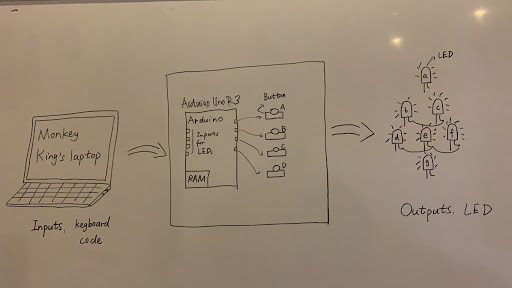 Monkey
King's laptop
Inputs, keyboard
code
Arduino Uno R3
Arduino
Inputs
for
LEDs
RAM
Button
A
B
C
D
LED
a
b
c
d
e
f
g
Outputs, LED